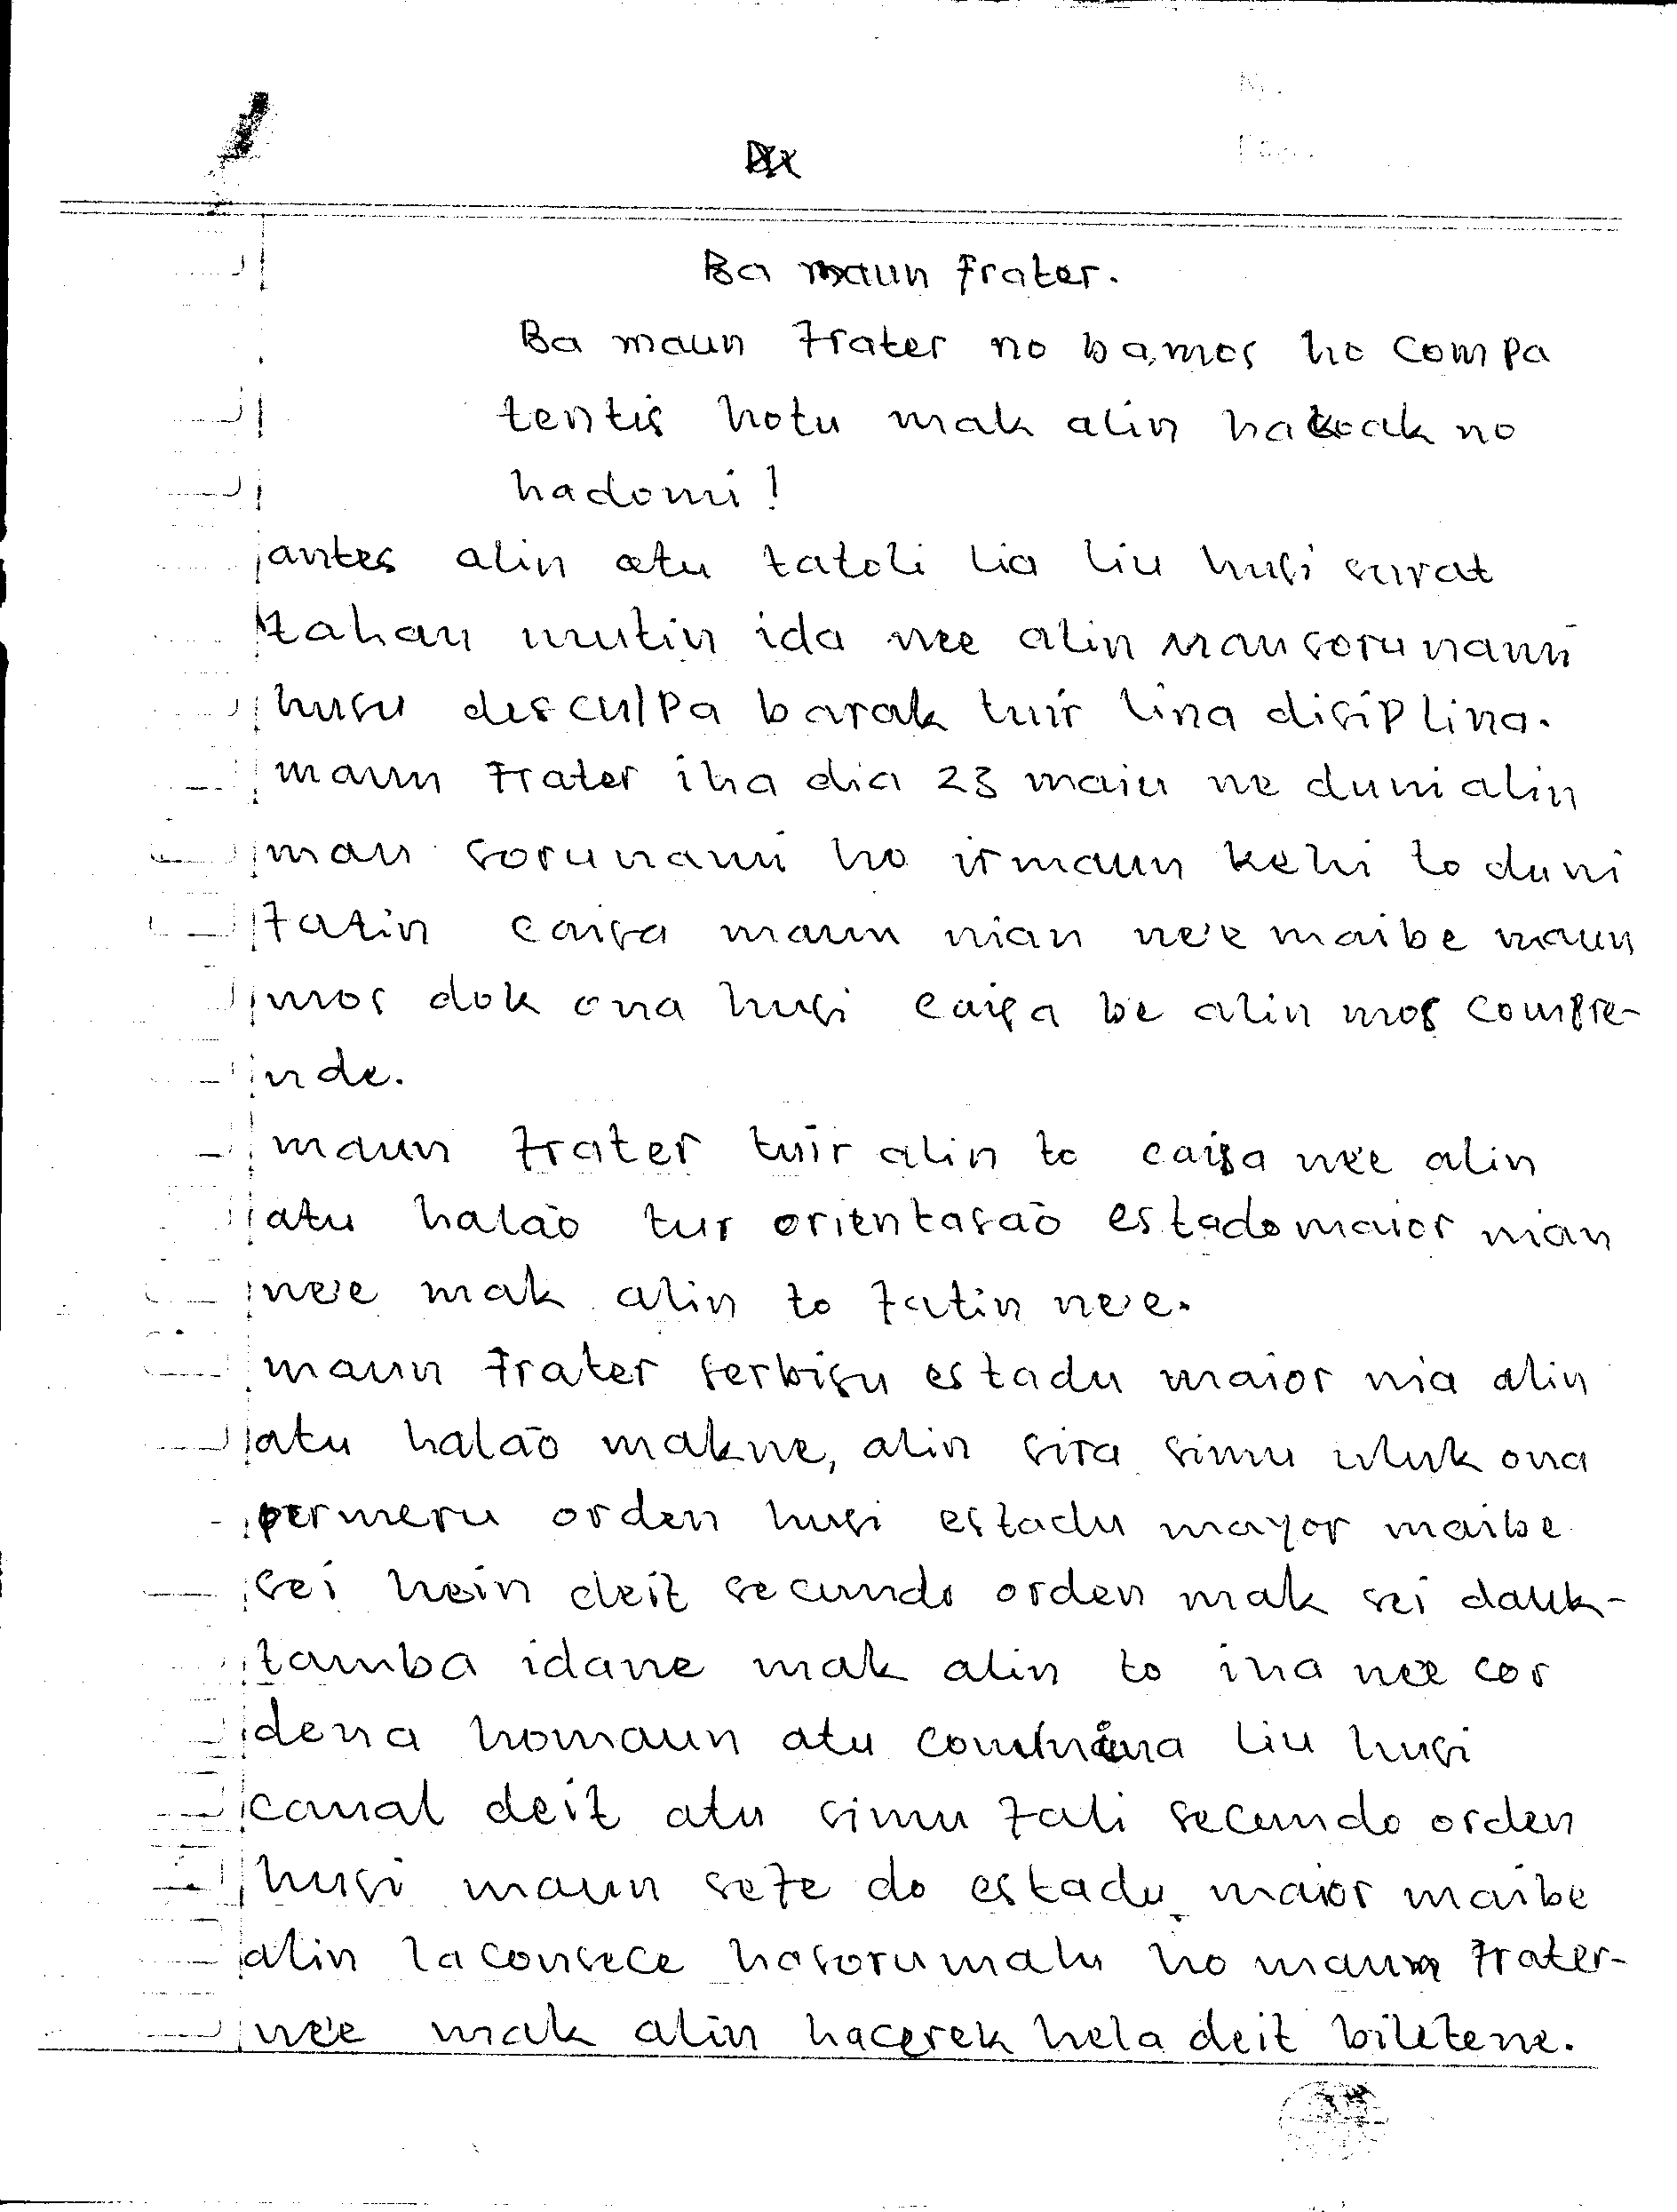 Ba maun Frater.
Ba maun Frater no bamos ho compa
tentis hotu mak alin hakoak no
hadomi!
antes alin atu tatoli lia liu husi surat
tahan mutin ida nee alin mausorunami
husu desculpa barak tuir lina disiplina.
maun Frater iha dia 23 maiu ne duni alin
mau sorunami ho irmaun kehi to duni
fatin caisa maun nian ne'e maibe maun
mos dok ona husi caisa be alin mos compre-
nde.
maun Frater tuir alin to caisa ne'e alin
atu halaõ tur orientasaõ estado maior nian
ne'e mak alin to fatin ne'e.
maun Frater serbisu estadu maior nia alin
atu halaõ makne, alin sira simu uluk ona
permeru orden husi estadu mayor maibe
sei hein deit secundo orden mak sei dauk-
tamba idane mak alin to iha nee cor
dena homaun atu comunina liu husi
canal deit atu simu fali secundo orden
husi maun sefe do estadu maior maibe
alin laconsece hasorumalu ho maun Frater-
ne'e mak alin hacerek hela deit biletene.